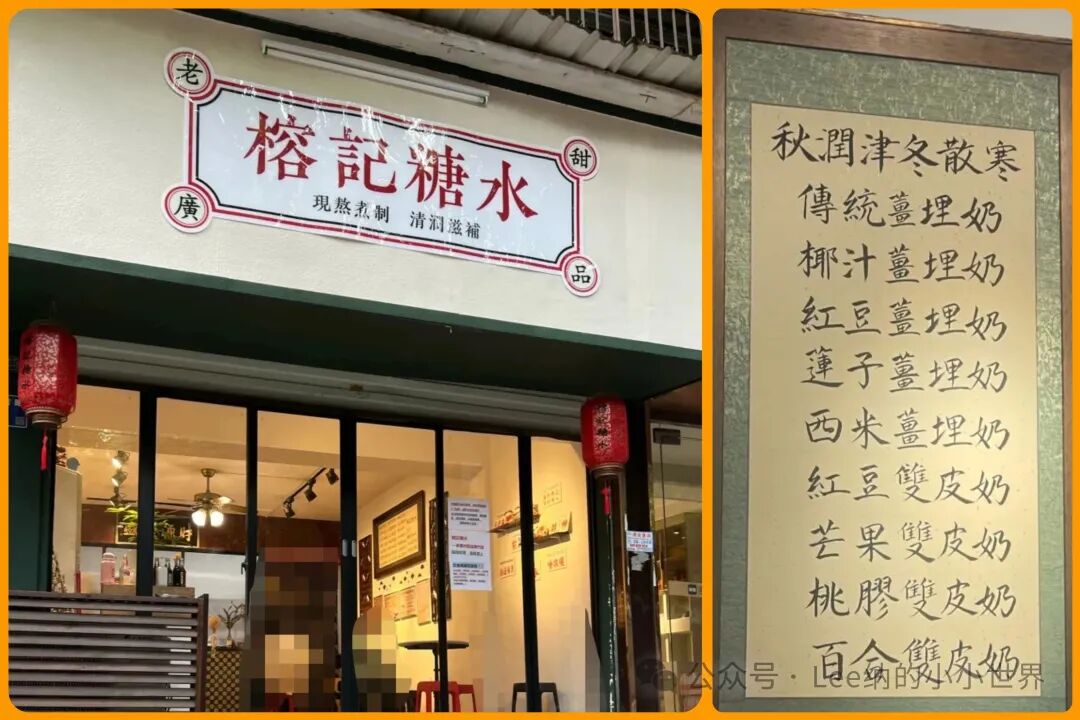 老廣
甜品
榕記糖水
現熬煮制 清润滋補
秋潤津冬散寒
傳統薑埋奶
椰汁薑埋奶
紅豆薑埋奶
蓮子薑埋奶
西米薑埋奶
紅豆雙皮奶
芒果雙皮奶
桃膠雙皮奶
百合雙皮奶
公众号·Lee纳的小小世界